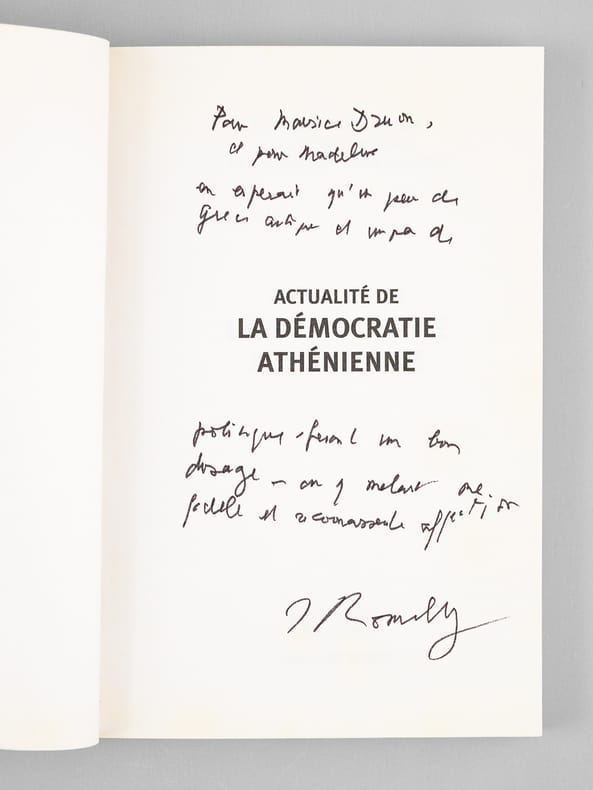 Pour Maurice Druon,
et pour Madeleine
en espérant qu'un peu de
Grèce antique et un peu de
ACTUALITÉ DE
LA DÉMOCRATIE
ATHÉNIENNE
politique feront un bon
dosage – en y mêlant une
fidèle et reconnaissante affection
J Romilly